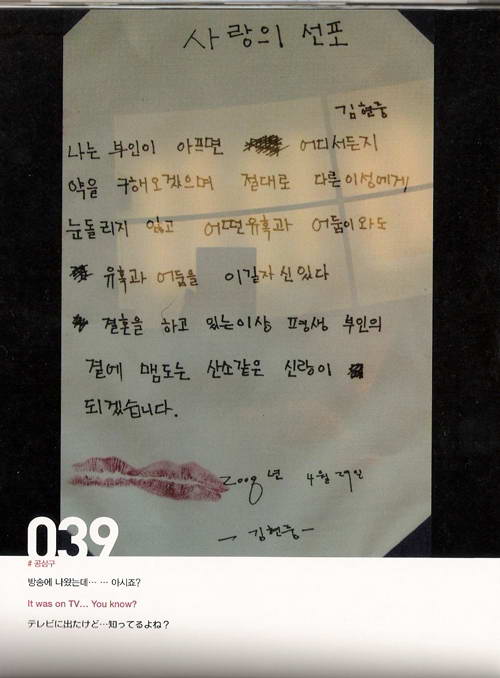 사랑의 선포
김현중
나는 부인이 아프면 어디서든지
약을 구해오겠으며 절대로 다른이성에게
눈돌리지 않고 어떤유혹과 어둠이와도
유혹과 어둠을 이길자신있다
결혼을 하고 있는이상 평생 부인의
곁에 맴도는 산소같은 신랑이
되겠습니다.
2008년 4월 29일
- 김현중 -
039
# 공삼구
방송에 나왔는데… … 아시죠?
It was on TV… You know?
テレビに出たけど…知ってるよね？